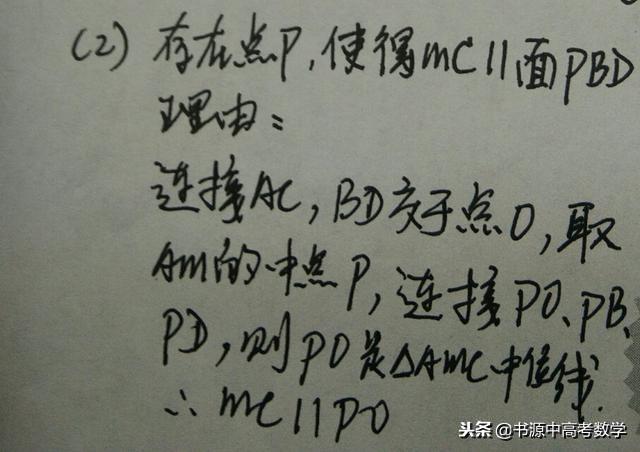 (2) 存在点P,使得MC∥面PBD
理由:
连接AC,BD交于点O,取
AM的中点P,连接PO、PB、
PD,则PO是△AMC中位线.
∴ MC∥PO
头条@书源中高考数学